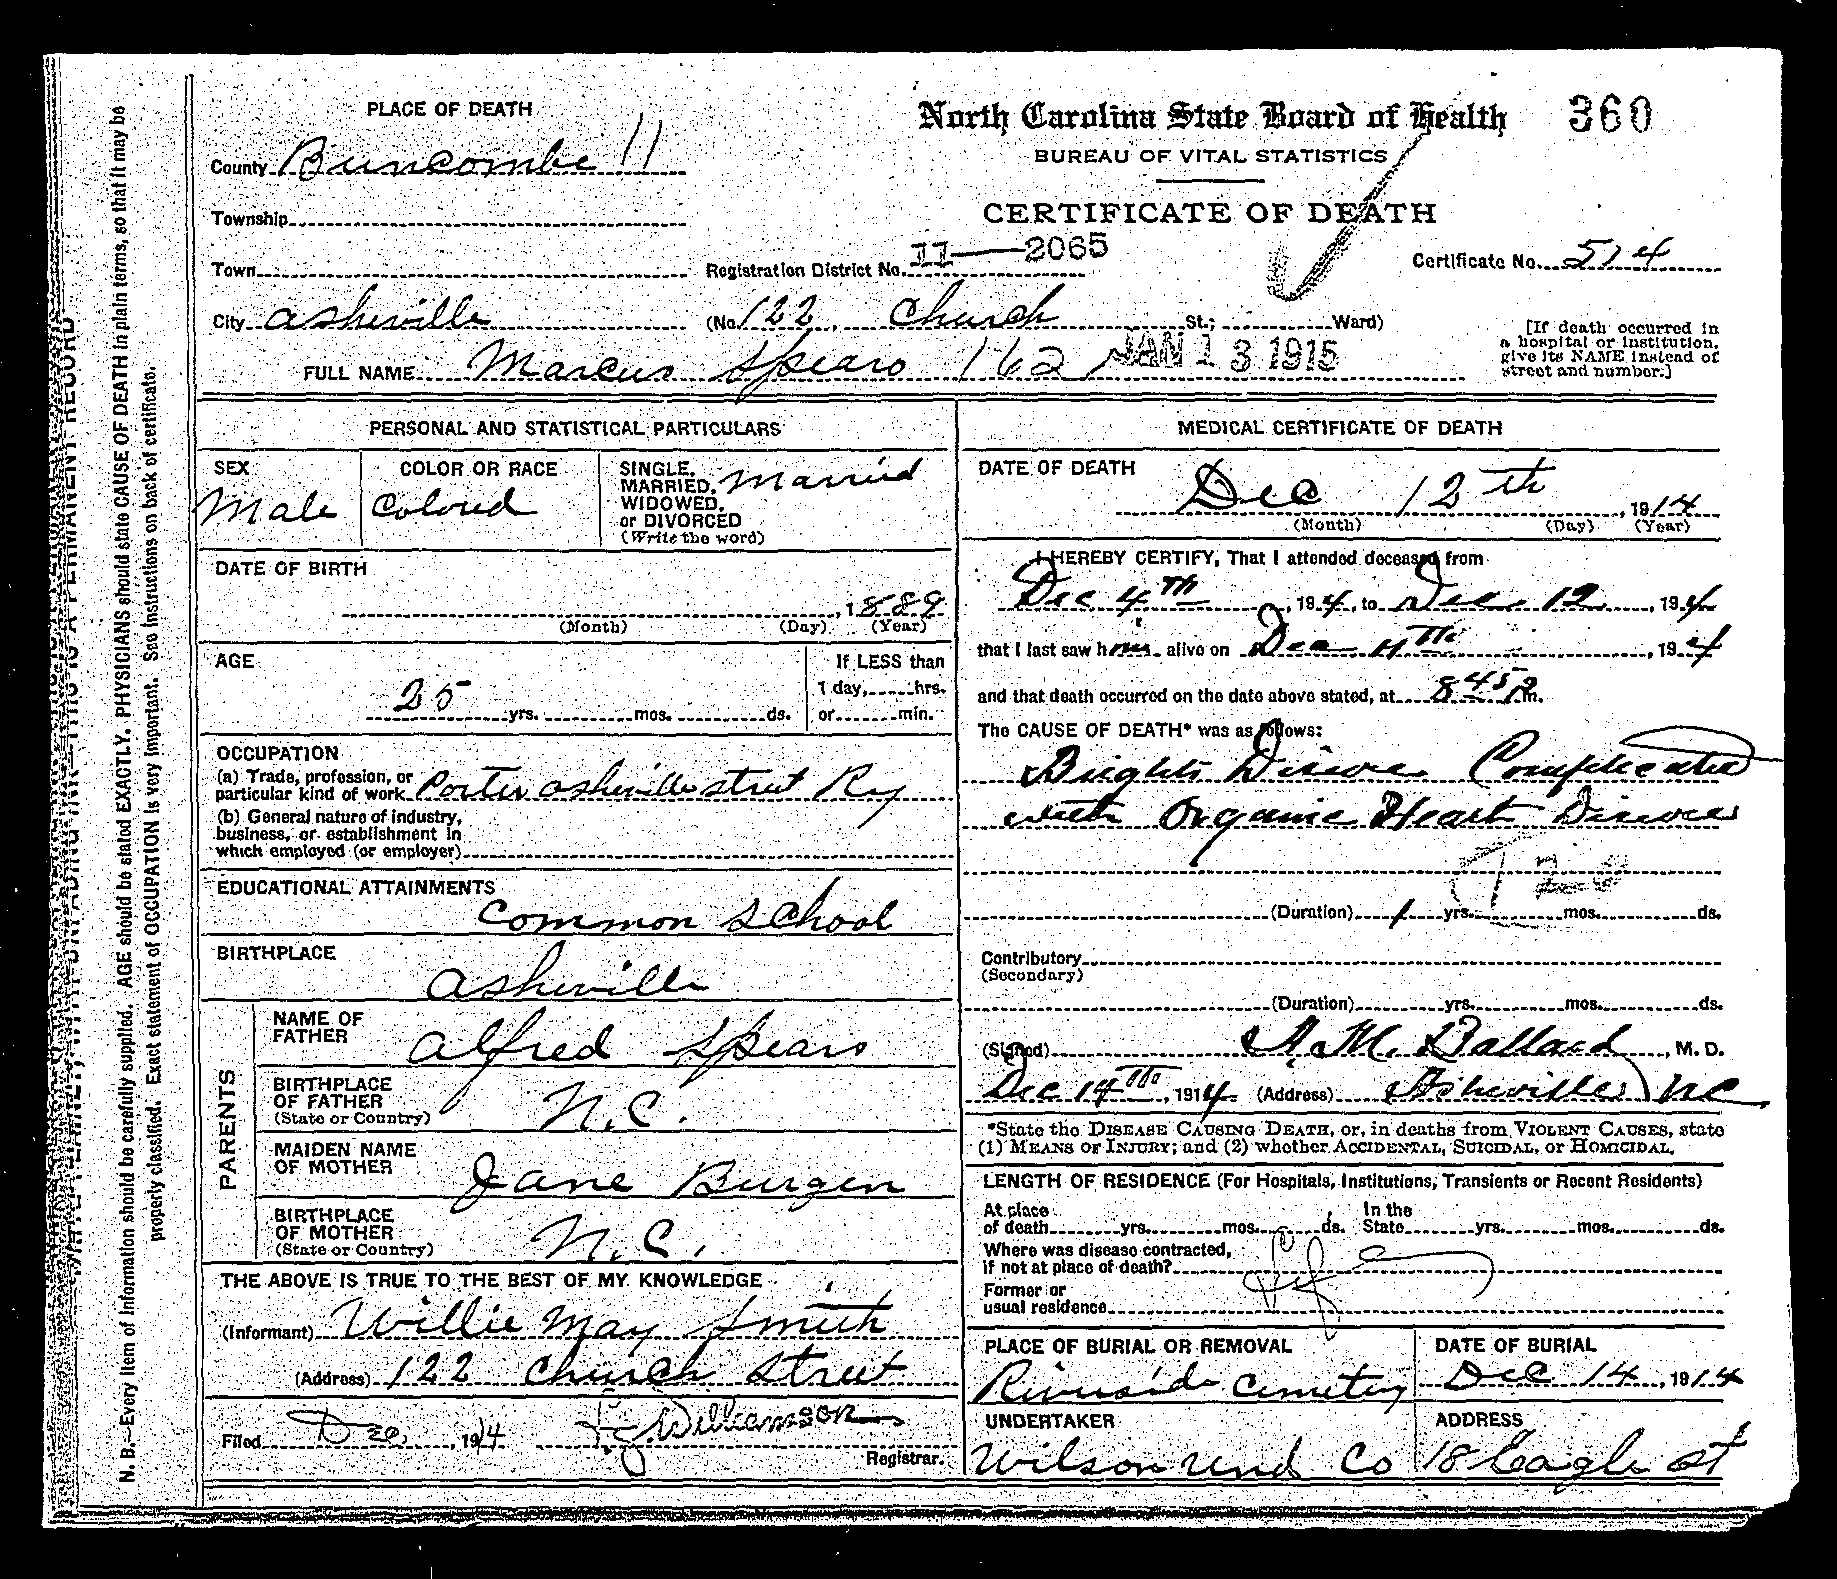 PLACE OF DEATH
North Carolina State Board of Health 360
BUREAU OF VITAL STATISTICS
CERTIFICATE OF DEATH
County Buncombe 11
Township
Town
Registration District No. II—2065
Certificate No. 514
City Asheville (No. 122 Church St.; Ward)
[If death occurred in
a hospital or institution,
give its NAME instead of
street and number.]
FULL NAME Marcus Spears 162 JAN 13 1915
PERSONAL AND STATISTICAL PARTICULARS
SEX
Male
COLOR OR RACE
Colored
SINGLE,
MARRIED,
WIDOWED,
or DIVORCED
(Write the word)
Married
DATE OF BIRTH
, 1889
(Month) (Day) (Year)
AGE
25 yrs. mos. ds.
If LESS than
1 day, hrs.
or min.
OCCUPATION
(a) Trade, profession, or
particular kind of work Porter Asheville street Ry
(b) General nature of industry,
business, or establishment in
which employed (or employer)
EDUCATIONAL ATTAINMENTS
Common School
BIRTHPLACE
Asheville
PARENTS
NAME OF
FATHER
Alfred Spears
BIRTHPLACE
OF FATHER
(State or Country)
N.C.
MAIDEN NAME
OF MOTHER
Jane Burgin
BIRTHPLACE
OF MOTHER
(State or Country)
N.C.
THE ABOVE IS TRUE TO THE BEST OF MY KNOWLEDGE
(Informant) Willie May Smith
(Address) 122 Church Street
Filed Dec, 1914 Williamson
Registrar.
MEDICAL CERTIFICATE OF DEATH
DATE OF DEATH
Dec 12th, 1914
(Month) (Day) (Year)
I HEREBY CERTIFY, That I attended deceased from
Dec 4th, 1914, to Dec. 12, 1914
that I last saw him alive on Dec. 11th, 1914
and that death occurred on the date above stated, at 8 45 P.m.
The CAUSE OF DEATH* was as follows:
Brights Disease Complicated
with Organic Heart Disease
120
(Duration) 1 yrs. mos. ds.
Contributory
(Secondary)
(Duration) yrs. mos. ds.
(Signed) A. M. Ballard, M. D.
Dec 14th, 1914 (Address) Asheville NC
*State the DISEASE CAUSING DEATH, or, in deaths from VIOLENT CAUSES, state
(1) MEANS OF INJURY; and (2) whether ACCIDENTAL, SUICIDAL, or HOMICIDAL.
LENGTH OF RESIDENCE (For Hospitals, Institutions, Transients or Recent Residents)
At place
of death yrs. mos. ds.
In the
State yrs. mos. ds.
Where was disease contracted,
if not at place of death?
Former or
usual residence
PLACE OF BURIAL OR REMOVAL
Riverside Cemetery
DATE OF BURIAL
Dec 14, 1914
UNDERTAKER
Wilson Und Co
ADDRESS
18 Eagle St
N. B.—Every item of information should be carefully supplied. AGE should be stated EXACTLY. PHYSICIANS should state CAUSE OF DEATH in plain terms, so that it may be
properly classified. Exact statement of OCCUPATION is very important. See instructions on back of certificate.